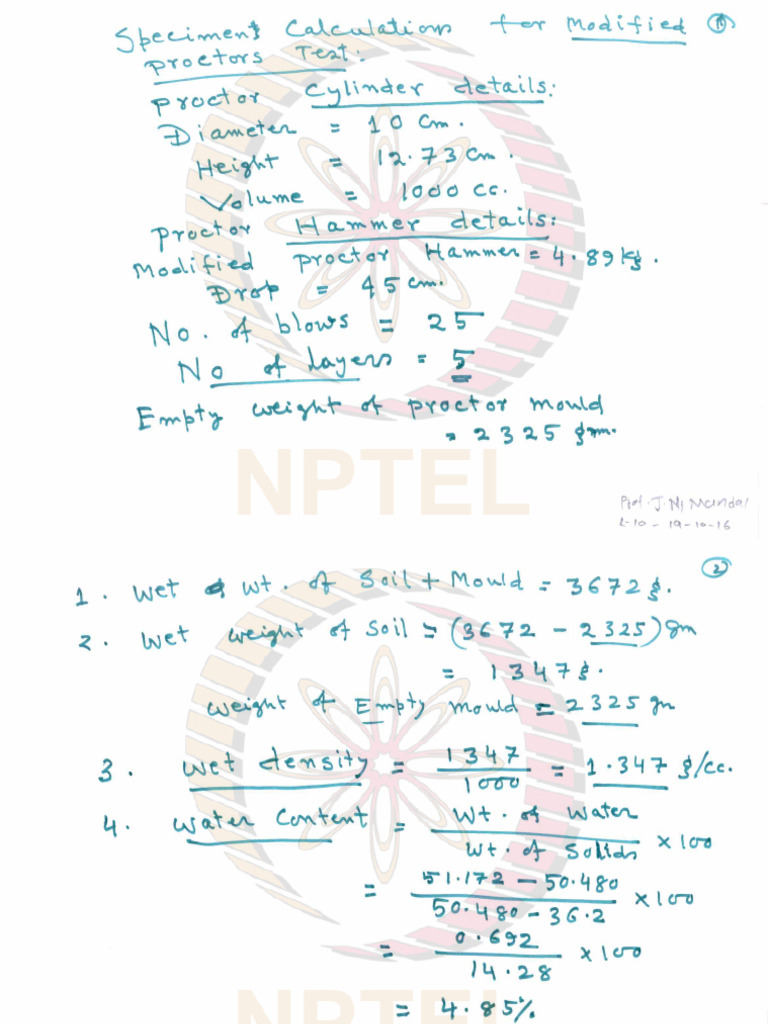 Speciment Calculations for Modified ①
Proctors Test:
Proctor Cylinder details:
Diameter = 10 cm.
Height = 12.73 cm.
Volume = 1000 cc.
Proctor Hammer details:
Modified Proctor Hammer = 4.89 kg.
Drop = 45 cm.
No. of blows = 25
No of Layers = 5
Empty weight of proctor mould
= 2325 gm.
NPTEL
Prof. J. N. Mandal
L-10 - 19-10-16
②
1. Wet wt. of Soil + Mould = 3672 g.
2. Wet weight of Soil = (3672 - 2325) gm
= 1347 g.
weight of Empty mould = 2325 gm
3. Wet density = 1347 / 1000 = 1.347 g/cc.
4. Water Content = Wt. of Water / Wt. of Solids × 100
= 51.172 - 50.480 / 50.480 - 36.2 × 100
= 0.692 / 14.28 × 100
= 4.85%
NPTEL